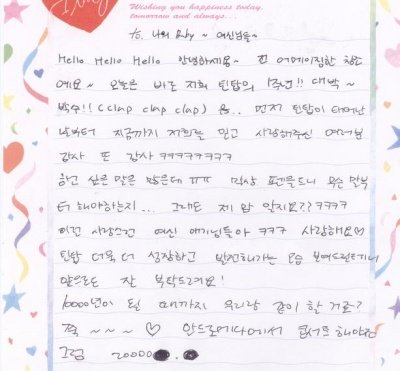 Wishing you happiness today,
tomorrow and always...
to. 나의 Baby ~ 여신님들~
Hello Hello Hello 안녕하세용~ 전 어메이징한 창조
예요~ 오늘은 바로 저희 틴탑의 1주년!! 대박~
박수!! (clap clap clap) 음.. 먼저 틴탑이 태어난
날부터 지금까지 저희를 믿고 사랑해주신 여러분
감사 또 감사 ㅋㅋㅋㅋㅋㅋㅋㅋ
하고 싶은 말은 많은데 ㅠㅠ 막상 펜을드니 무슨 말부
터 해야하는지... 그래도 제 맘 알지요?? ㅋㅋㅋㅋ
이런 사랑스런 여신 애기님들아 ㅋㅋㅋ 사랑해요♡
틴탑 더욱 더 성장하고 발전해가는 모습 보여드릴테니
앞으로도 잘 부탁드려요!
10000년이 될 때까지 우리랑 같이 할 거죠?
쭉 ~ ~ ~ ♡ 안드로메다에서 콘서트 해야죠
그럼 20000